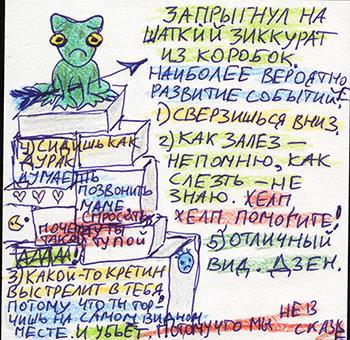 ЗАПРЫГНУЛ НА
ШАТКИЙ ЗИККУРАТ
ИЗ КОРОБОК.
НАИБОЛЕЕ ВЕРОЯТНОЕ
РАЗВИТИЕ СОБЫТИЙ:
1) СВЕРЗИШЬСЯ ВНИЗ.
2) КАК ЗАЛЕЗ –
НЕПОМНЮ, КАК
СЛЕЗТЬ – НЕ
ЗНАЮ. ХЕЛП
ХЕЛП ПОМОГИТЕ!
3) КАКОЙ-ТО КРЕТИН
ВЫСТРЕЛИТ В ТЕБЯ
ПОТОМУ ЧТО ТЫ ТОР-
ЧИШЬ НА САМОМ ВИДНОМ
МЕСТЕ. И УБЬЕТ. ПОТОМУ ЧТО МЫ
НЕ В
СКАЗКЕ
4) СИДИШЬ КАК
ДУРАК
ДУМАЕШЬ
ПОЗВОНИТЬ
МАМЕ
СПРОСИТЬ
ПОЧЕМУ ТЫ
ТАКОЙ ТУПОЙ
ААААА!
5) ОТЛИЧНЫЙ
ВИД. ДЗЕН.